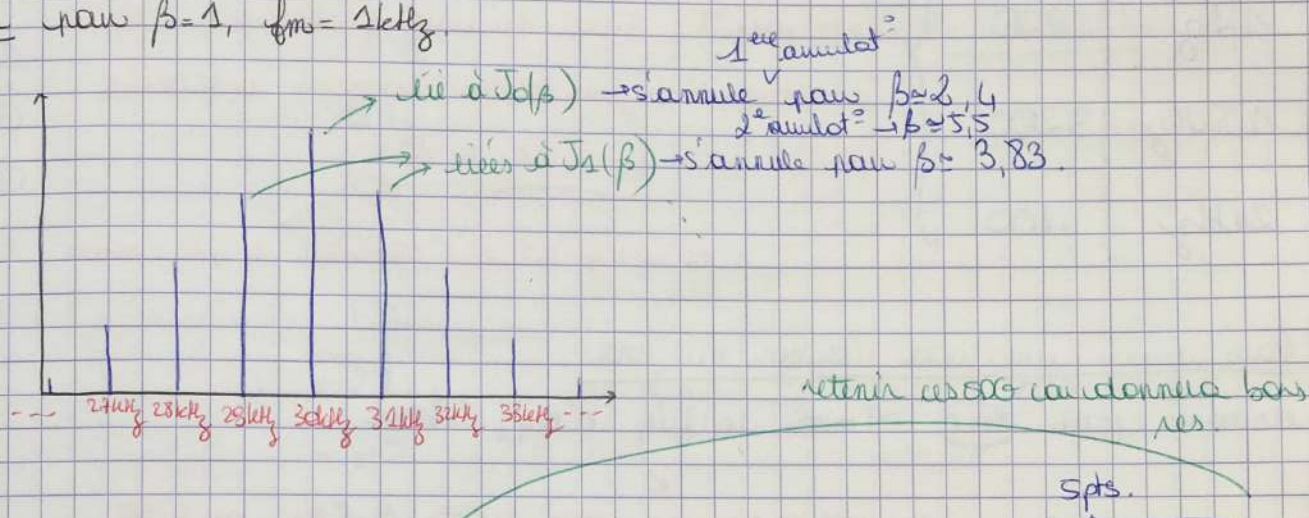 pour β=1, fm= 1kHz
1ère annulat°
lié à J0(β) → s'annule pour β≃2,4
2e annulat° → β≃5,5
liées à J1(β) → s'annule pour β≃ 3,83.
--- 27kHz 28kHz 29kHz 30kHz 31kHz 32kHz 33kHz ---
retenir ces car donnera bons
res.
5pts.